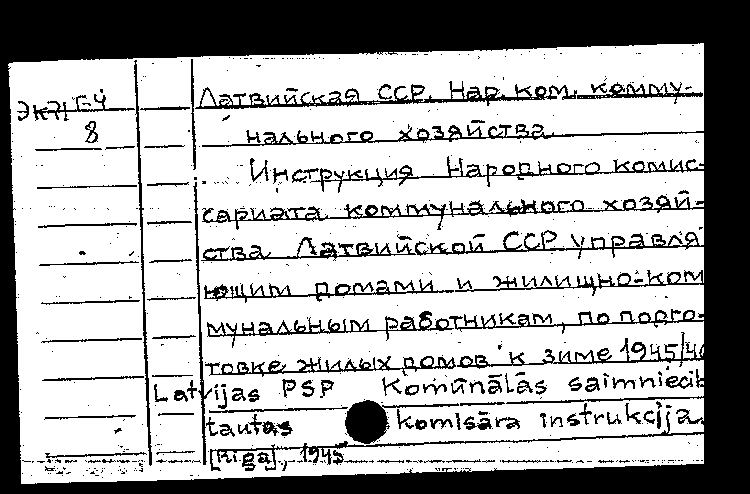 Латвийская ССР. Нар. ком. комму-
нального хозяйства.
Инструкция Народного комис-
сариата коммунального хозяй-
ства Латвийской ССР управля
ющим домами и жилищно-ком
мунальным работникам, по подго-
товке жилых домов к зиме 1945/46
Latvijas PSP Komūnālās saimniecīb
tautas komisāra instrukcija.
[Rīga], 1945
8